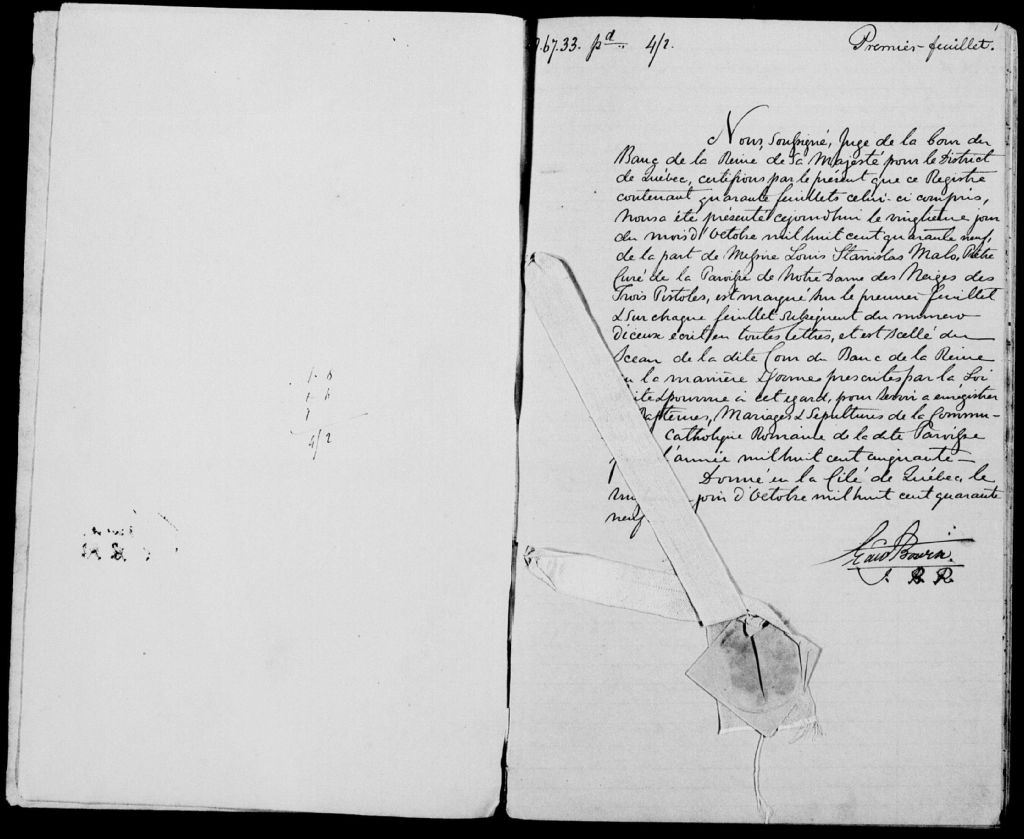 1. 8
4/2
67.33. pd 4/2.
Premier feuillet.
Nous, Soussigné, Juge de la Cour du
Banc de la Reine de Sa Majesté pour le District
de Québec, certifions par le présent que ce Registre
contenant quarante feuillets celui-ci compris,
Nous a été présenté cejourdhui le vingtieme jour
du mois d'Octobre mil huit cent quarante neuf,
de la part de Messire Louis Stanislas Malo, Prêtre
Curé de la Paroisse de Notre Dame des Neiges des
Trois Pistoles, est marqué sur le premier feuillet
& sur chaque feuillet subséquent du numero
d'iceux écrit en toutes lettres, et est scellé du
Sceau de la dite Cour du Banc de la Reine
en la manière & formes prescrites par la Loi
faite & pourvue à cet egard, pour servir a enrégistrer
Baptemes, Mariages & Sepultures de la Commu-
Catholique Romaine de la dite Paroisse
l'année mil huit cent cinquante—
Donné en la Cité de Québec, le
jour d'Octobre mil huit cent quarante
neuf
J. B. R.